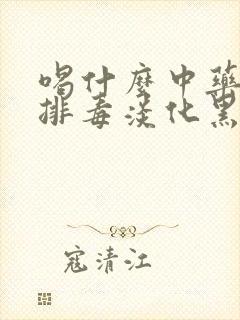 喝什麼中藥
排毒淡化黑
寇清江